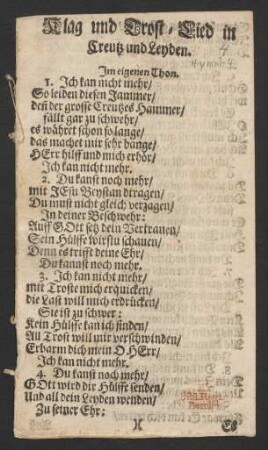 Klag und Trost/Lied in
Creutz und Leyden.
Im eigenen Thon.
1. Ich kan nicht mehr/
So leiden diesen Jammer/
deñ der grosse Creutzes Hammer/
fällt gar zu schwehr/
es währet schon so lange/
das machet mir sehr bange/
HErr hilff und mich erhör/
Ich kan nicht mehr.
2. Du kanst noch mehr/
mit JEsu Beystan dtragen/
Du must nicht gleich verzagen/
In deiner Beschwehr:
Auff GOtt setz dein Vertrauen/
Sein Hülffe wirstu schauen/
Denn es trifft deine Ehr/
Du kannst noch mehr.
3. Ich kan nicht mehr/
mit Troste mich erquicken/
die Last will mich erdrücken/
Sie ist zu schwer:
Kein Hülffe kan ich finden/
All Trost will mir verschwinden/
Erbarm dich mein O HErr/
Ich kan nicht mehr.
4. Du kanst noch mehr/
GOtt wird dir Hülffe senden/
Und all dein Leyden wenden/
Zu seiner Ehr:
)( Es